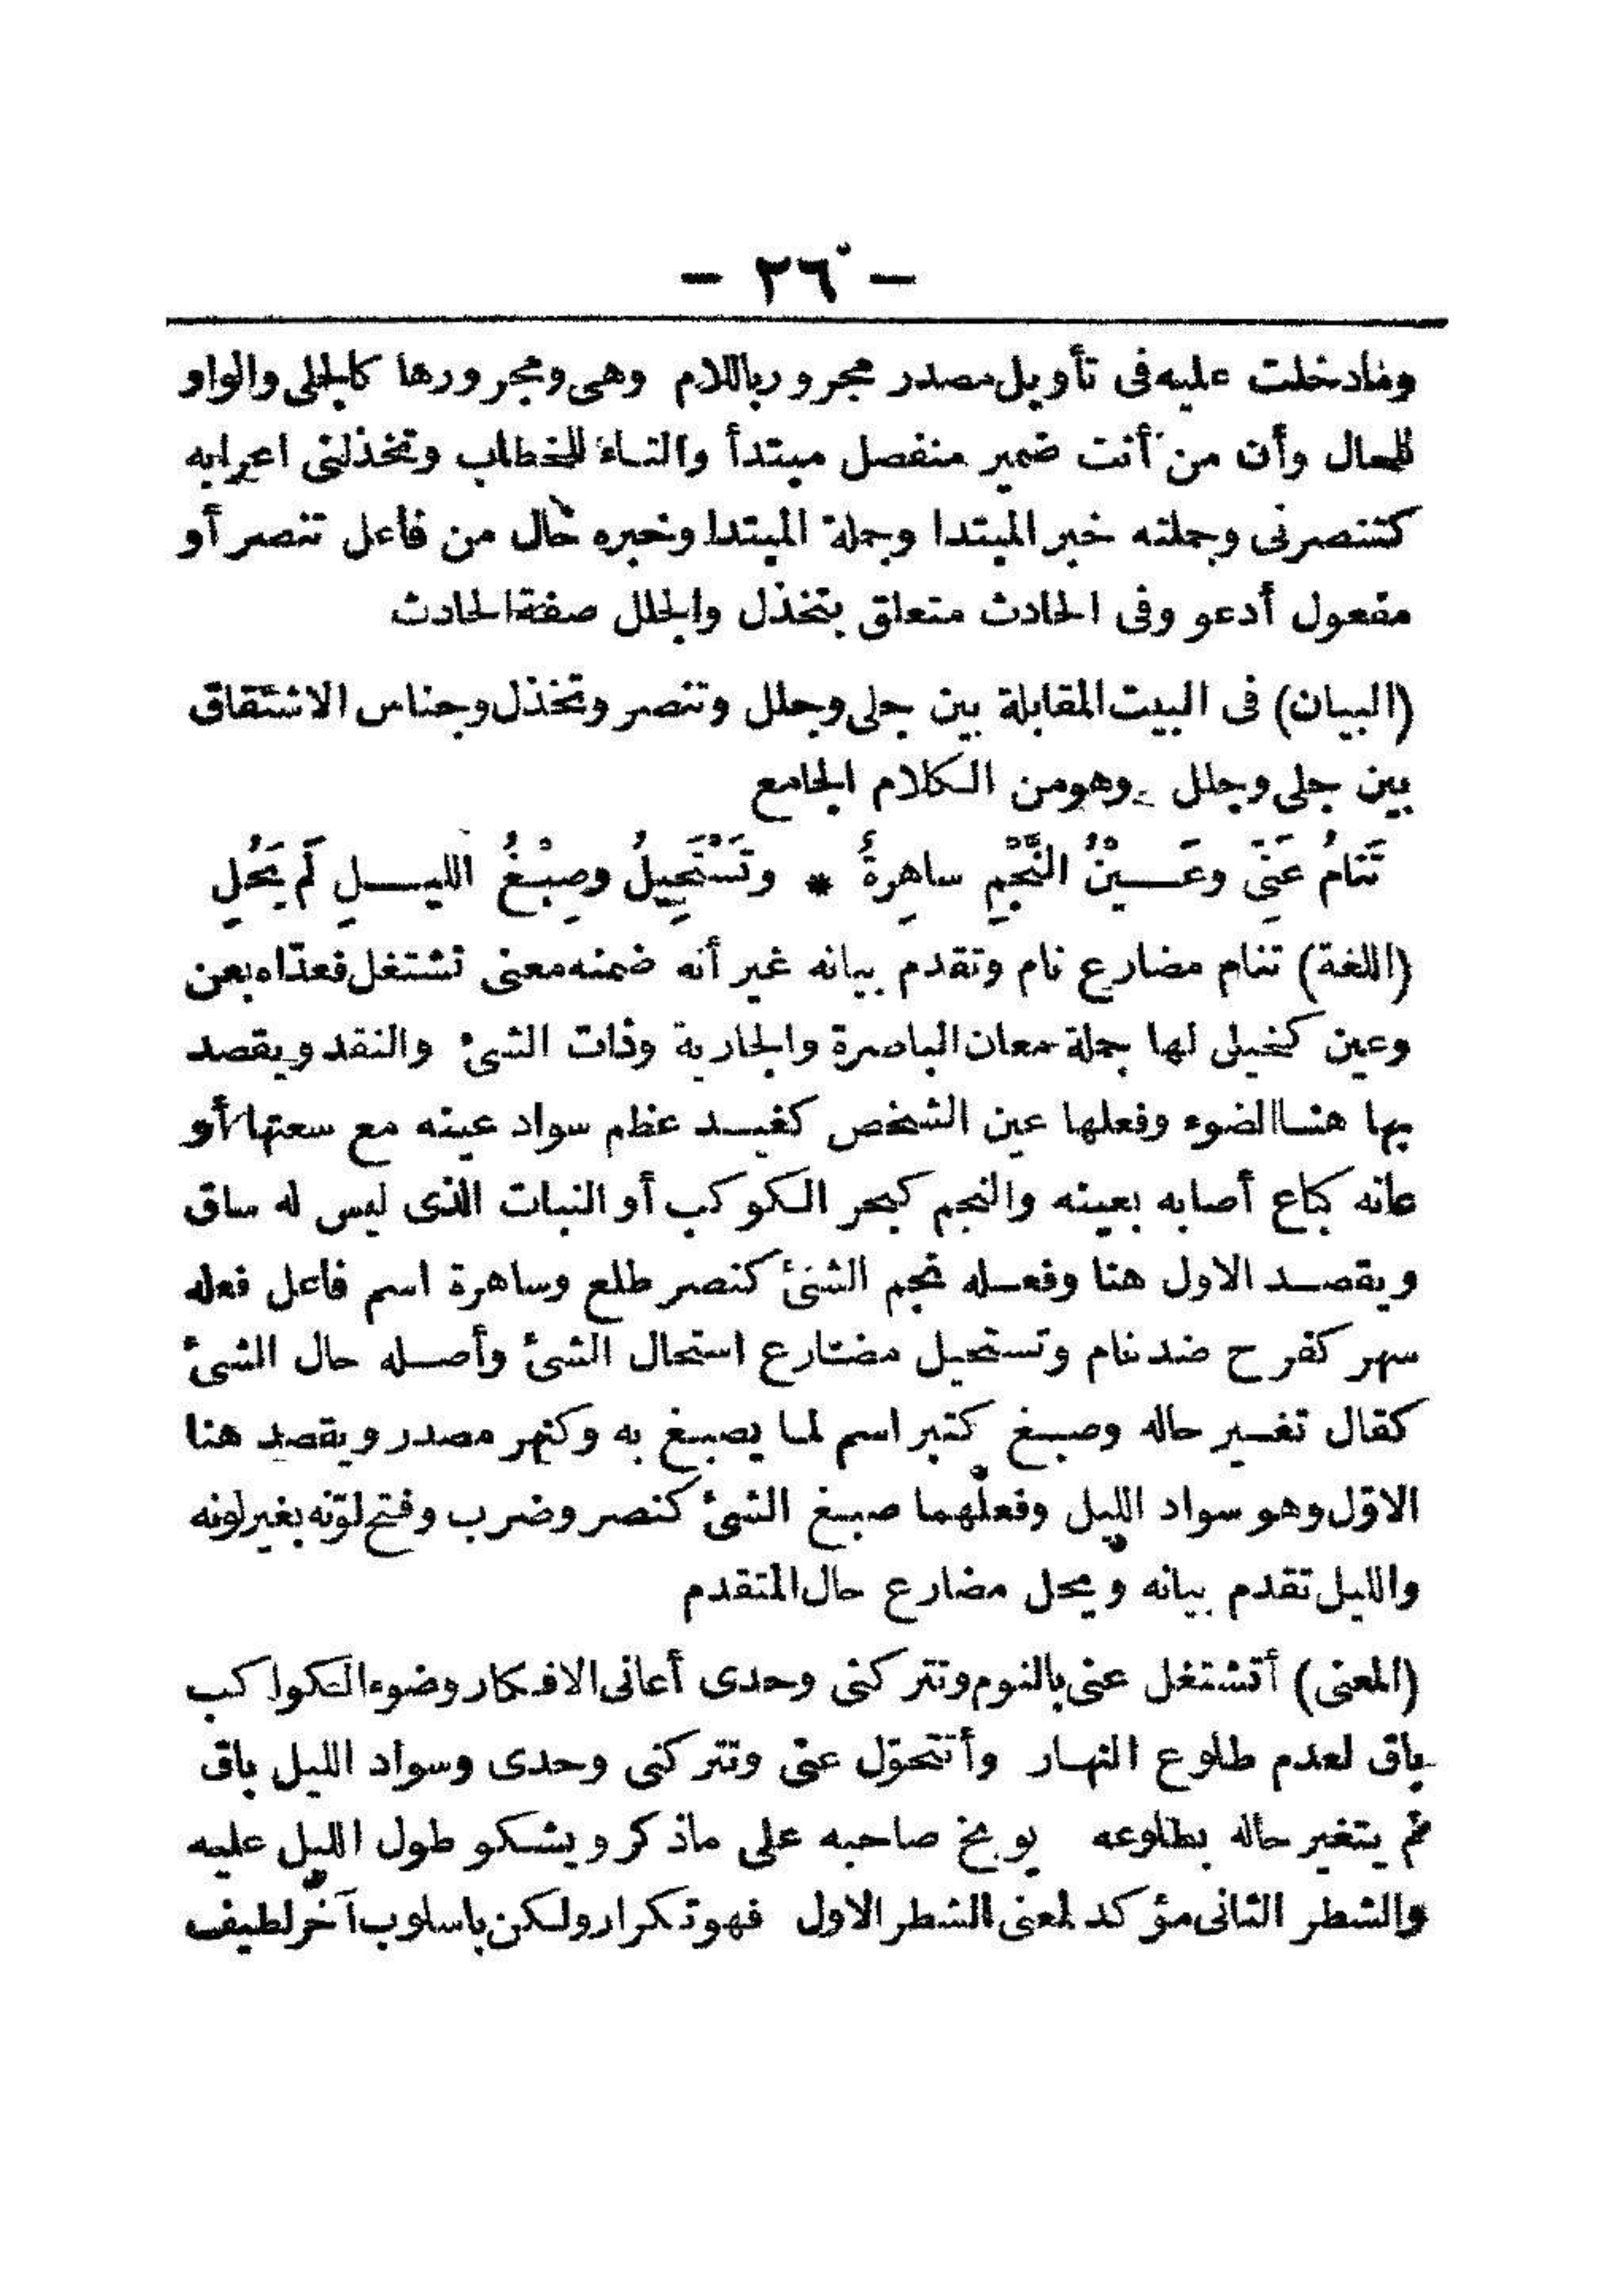 - ٢٦ -
ومادخلت عليه فى تأويل مصدر مجرور باللام وهى ومجرورها كالجلى والواو
للحال وأن من أنت ضمير منفصل مبتدأ والتاء للخطاب وتخذلنى اعرابه
كتنصرنى وجملته خبر المبتدا وجملة المبتدا وخبره حال من فاعل تنصر أو
مفعول أدعو وفى الحادث متعلق بتخذل والجلل صفة الحادث
(البيان) فى البيت المقابلة بين جلى وجلل وتنصر وتخذل وجناس الاشتقاق
بين جلى وجلل وهو من الكلام الجامع
تَنَامُ عَنِّى وعَيْنُ النَّجْمِ ساهِرةُ * وتَسْتَحِيلُ وصِبْغُ الليلِ لَم يَحُلِ
(اللغة) تنام مضارع نام وتقدم بيانه غير أنه ضمنه معنى تشتغل فعدّاه بعن
وعين كخيل لها جملة معان الباصرة والجارية وذات الشئ والنقد ويقصد
بها هنا الضوء وفعلها عين الشخص كغيد عظم سواد عينه مع سعتها أو
عانه كباع أصابه بعينه والنجم كبحر الكوكب أو النبات الذى ليس له ساق
ويقصد الاول هنا وفعله نجم الشئ كنصر طلع وساهرة اسم فاعل فعله
سهر كفرح ضد نام وتستحيل مضارع استحال الشئ وأصله حال الشئ
كقال تغير حاله وصبغ كتبر اسم لما يصبغ به وكنهر مصدر ويقصد هنا
الاوّل وهو سواد الليل وفعلهما صبغ الشئ كنصر وضرب وفتح لوّنه بغير لونه
والليل تقدم بيانه ويحل مضارع حال المتقدم
(المعنى) أتشتغل عنى بالنوم وتتركنى وحدى أعانى الافكار وضوء الكواكب
باق لعدم طلوع النهار وأتتحوّل عنى وتتركنى وحدى وسواد الليل باق
لم يتغير حاله بطلوعه يوبخ صاحبه على ماذكر ويشكو طول الليل عليه
والشطر الثانى مؤكد لمعنى الشطر الاول فهو تكرار ولكن باسلوب آخر لطيف